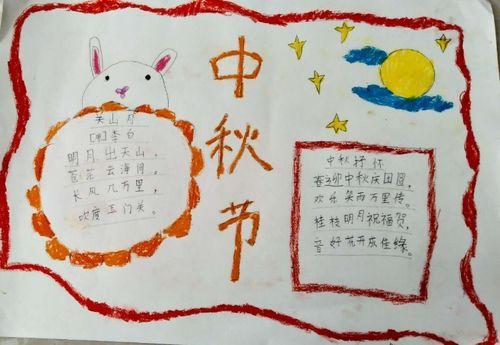 中秋节
关山月
[唐]李白
明月出天山，
苍茫云海间，
长风几万里，
吹度玉门关。
中秋抒怀
迎中秋庆团圆，
欢乐笑而万里传。
桂枝明月祝福贺，
音好花开成佳缘。